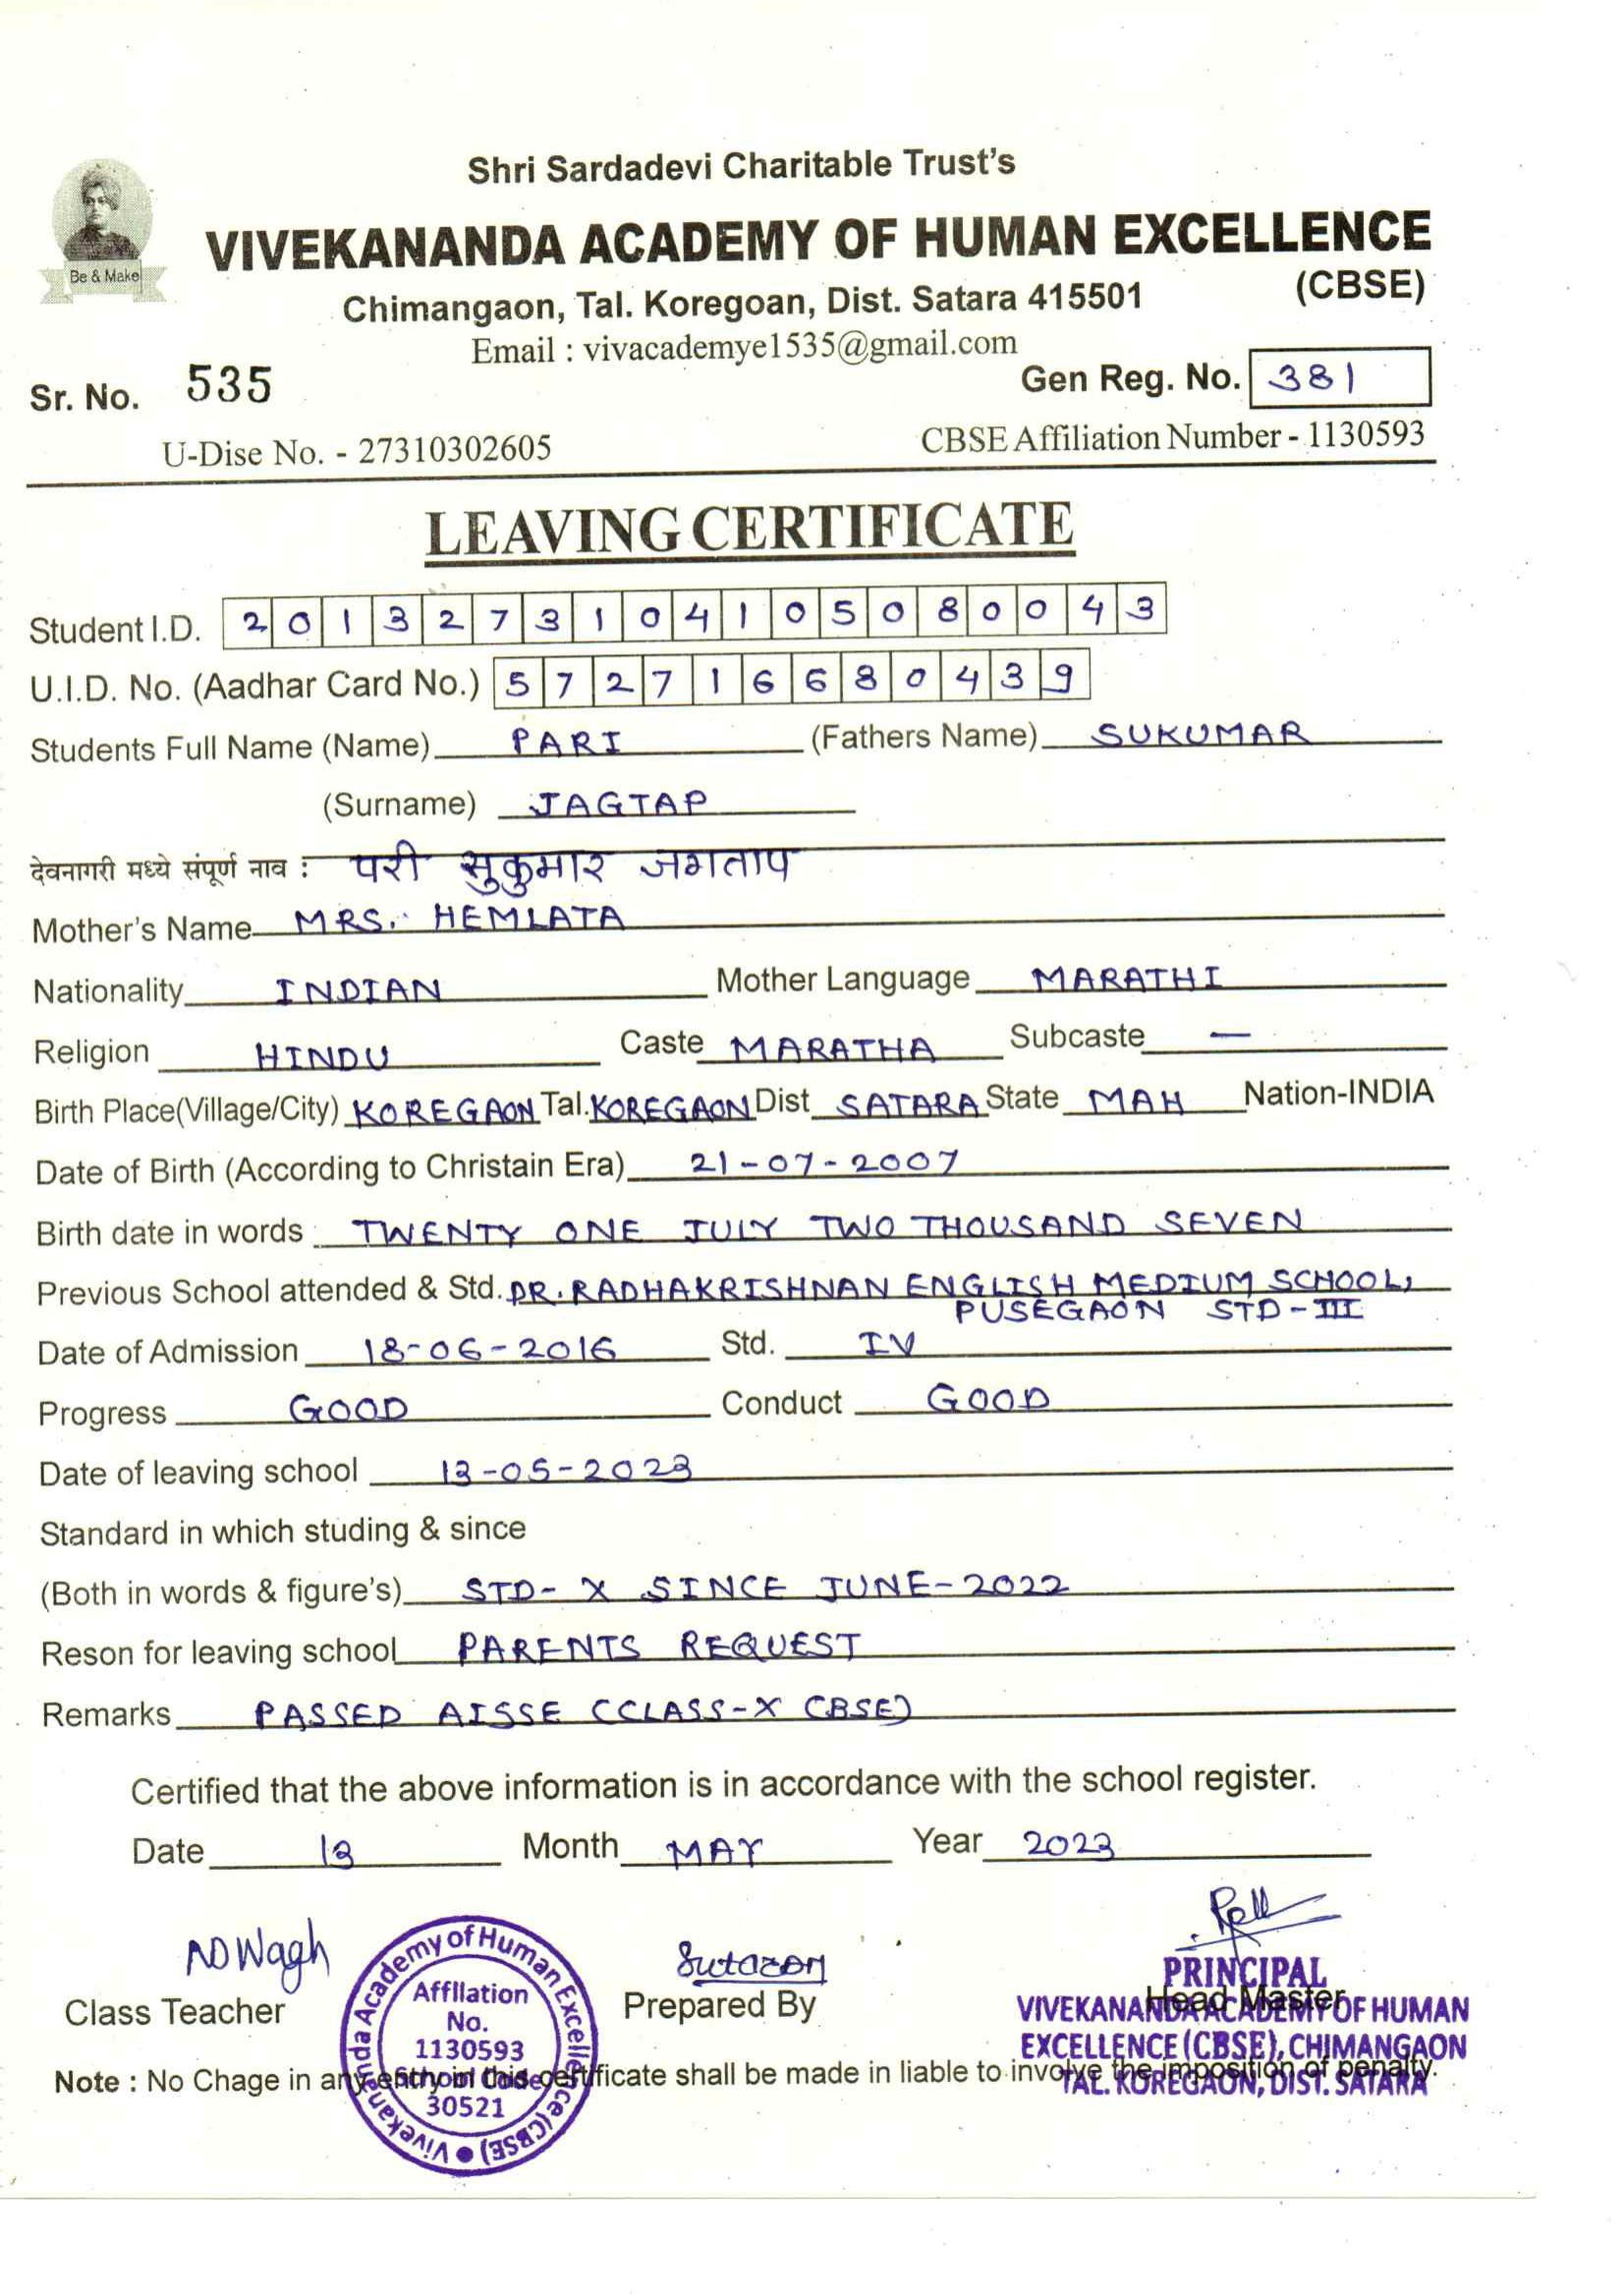 Shri Sardadevi Charitable Trust's
Be & Make
VIVEKANANDA ACADEMY OF HUMAN EXCELLENCE
(CBSE)
Chimangaon, Tal. Koregoan, Dist. Satara 415501
Email : vivacademye1535@gmail.com
Sr. No. 535 Gen Reg. No. 381
U-Dise No. - 27310302605 CBSE Affiliation Number - 1130593
LEAVING CERTIFICATE
Student I.D. 2013273104105080043
U.I.D. No. (Aadhar Card No.) 572716680439
Students Full Name (Name) PARI (Fathers Name) SUKUMAR
(Surname) JAGTAP
देवनागरी मध्ये संपूर्ण नाव : परी सुकुमार जगताप
Mother's Name MRS. HEMLATA
Nationality INDIAN Mother Language MARATHI
Religion HINDU Caste MARATHA Subcaste —
Birth Place(Village/City) KOREGAON Tal. KOREGAON Dist SATARA State MAH Nation-INDIA
Date of Birth (According to Christain Era) 21-07-2007
Birth date in words : TWENTY ONE JULY TWO THOUSAND SEVEN
Previous School attended & Std. DR. RADHAKRISHNAN ENGLISH MEDIUM SCHOOL,
PUSEGAON STD-III
Date of Admission 18-06-2016 Std. IV
Progress GOOD Conduct GOOD
Date of leaving school 13-05-2023
Standard in which studing & since
(Both in words & figure's) STD- X SINCE JUNE-2022
Reson for leaving school PARENTS REQUEST
Remarks PASSED AISSE (CLASS-X CBSE)
Certified that the above information is in accordance with the school register.
Date 13 Month MAY Year 2023
NDWagh
Class Teacher
Vivekananda Academy of Human Excellence (CBSE)
Affilation
No.
1130593
30521
Sutazon
Prepared By
PRINCIPAL
Head Master
VIVEKANANDA ACADEMY OF HUMAN
EXCELLENCE (CBSE), CHIMANGAON
TAL. KOREGAON, DIST. SATARA
Note : No Chage in any enthoin this certificate shall be made in liable to involve the imposition of penalty.